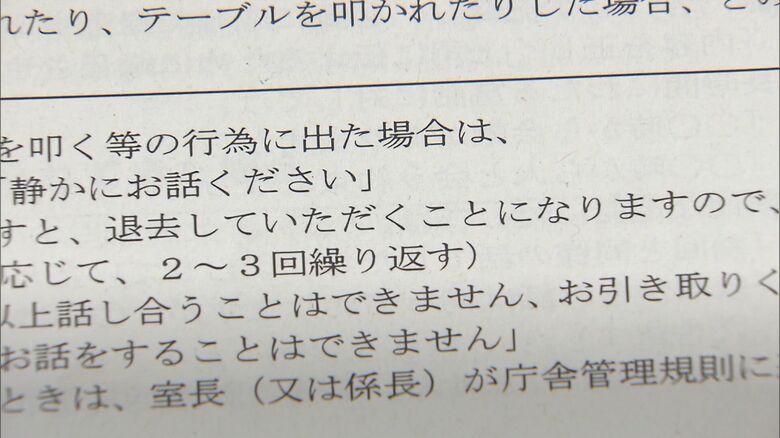 れたり、テーブルを叩かれたりした場合、
を叩く等の行為に出た場合は、
「静かにお話ください」
すと、退去していただくことになりますので、
応じて、２～３回繰り返す）
以上話し合うことはできません、お引き取りく
お話をすることはできません」
ときは、室長（又は係長）が庁舎管理規則に